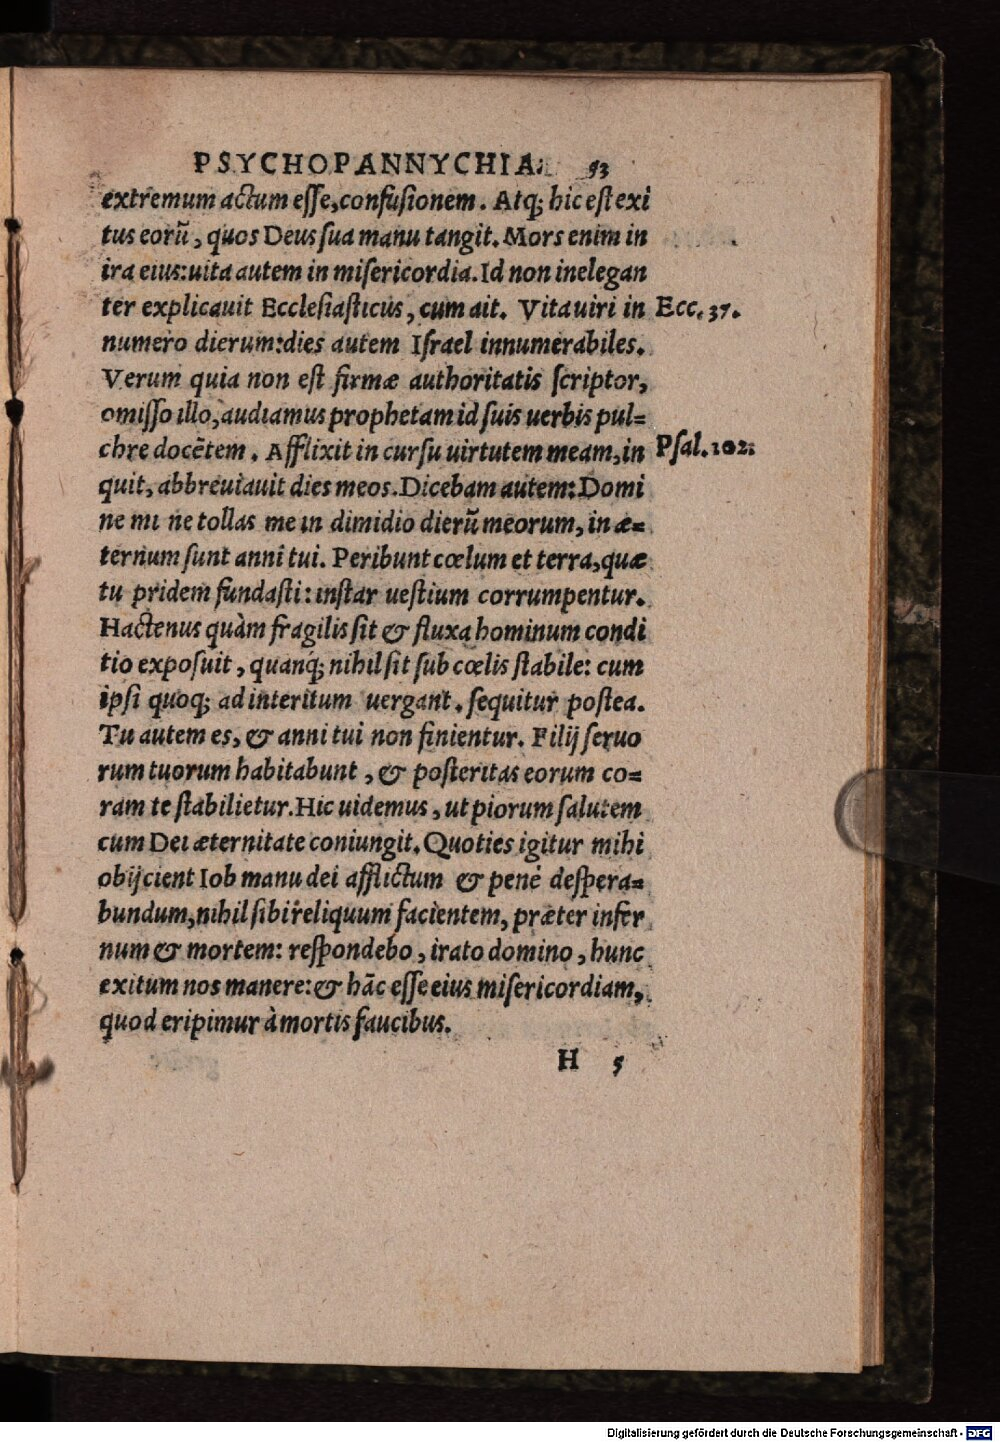 PSYCHOPANNYCHIA. 53
extremum actum esse, confusionem. Atq; hic est exi
tus eorũ, quos Deus sua manu tangit. Mors enim in
ira eius: uita autem in misericordia. Id non inelegan
ter explicauit Ecclesiasticus, cum ait. Vita uiri in Ecc. 37.
numero dierum: dies autem Israel innumerabiles.
Verum quia non est firmæ authoritatis scriptor,
omisso illo, audiamus prophetam id suis uerbis pul=
chre docētem. Afflixit in cursu uirtutem meam, in Psal. 102:
quit, abbreuiauit dies meos. Dicebam autem: Domi
ne mi ne tollas me in dimidio dierũ meorum, in æ=
ternum sunt anni tui. Peribunt cœlum et terra, quæ
tu pridem fundasti: instar uestium corrumpentur.
Hactenus quàm fragilis sit & fluxa hominum condi
tio exposuit, quanq; nihil sit sub cœlis stabile: cum
ipsi quoq; ad interitum uergant. sequitur postea.
Tu autem es, & anni tui non finientur. Filij seruo
rum tuorum habitabunt, & posteritas eorum co=
ram te stabilietur. Hic uidemus, ut piorum salutem
cum Dei æternitate coniungit. Quoties igitur mihi
obijcient Iob manu dei afflictum & penè despera=
bundum, nihil sibi reliquum facientem, præter infer
num & mortem: respondebo, irato domino, hunc
exitum nos manere: & hãc esse eius misericordiam,
quod eripimur à mortis faucibus.
H 5
Digitalisierung gefördert durch die Deutsche Forschungsgemeinschaft - DFG